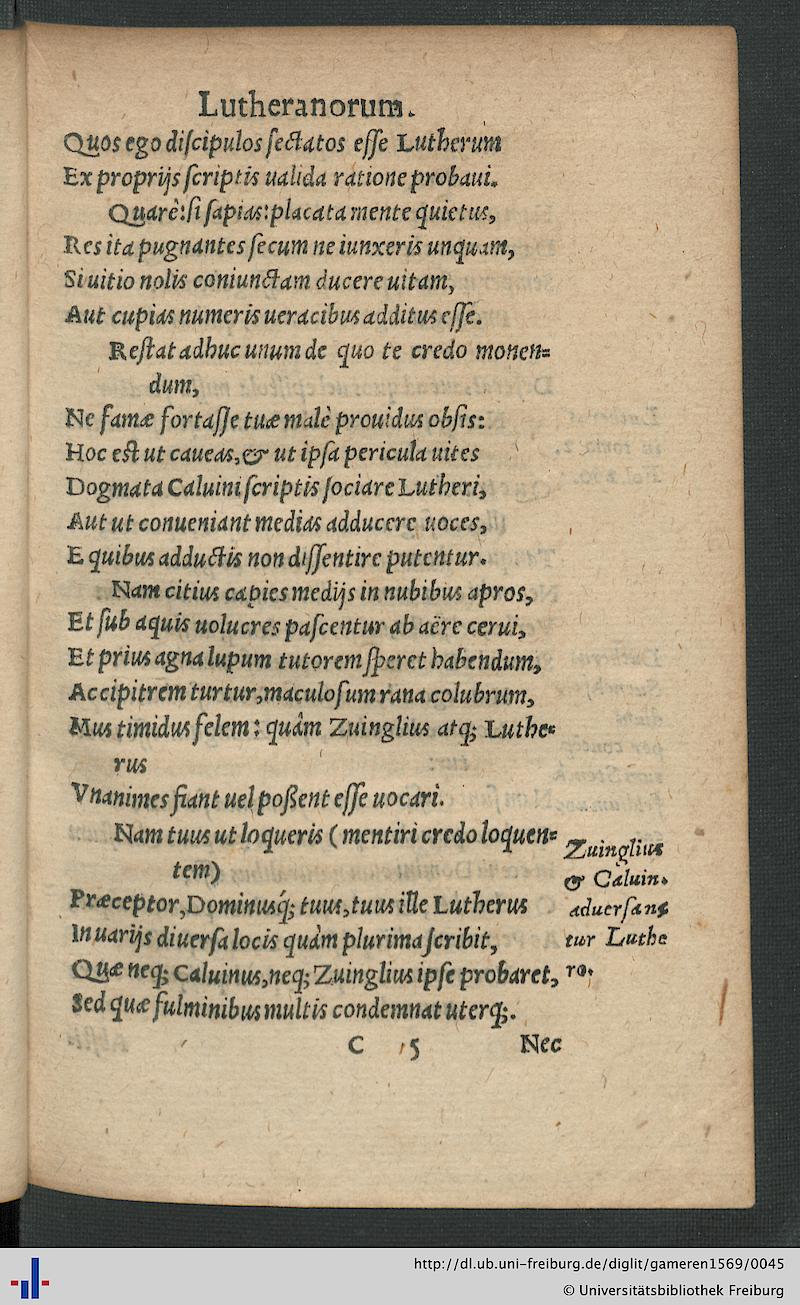 Lutheranorum.
Quos ego diſcipulos ſectatos eſſe Lutherum
Ex proprijs ſcriptis ualida ratione probaui.
Quarè: ſi ſapias: placata mente quietus,
Res ita pugnantes ſecum ne iunxeris unquam,
Si uitio nolis coniunctam ducere uitam,
Aut cupias numeris ueracibus additus eſſe.
Reſtat adhuc unum de quo te credo monen=
dum,
Ne famæ fortaſſe tuæ malè prouidus obſis:
Hoc eſt ut caueas, & ut ipſa pericula uites
Dogmata Caluini ſcriptis ſociare Lutheri,
Aut ut conueniant medias adducere uoces,
E quibus adductis non diſſentire putentur.
Nam citius capies medijs in nubibus apros,
Et ſub aquis uolucres paſcentur ab aëre cerui,
Et prius agna lupum tutorem ſperet habendum,
Accipitrem turtur, maculoſum rana colubrum,
Mus timidus felem: quâm Zuinglius atq; Luthe=
rus
Vnanimes fiant uel poßent eſſe uocari.
Nam tuus ut loqueris (mentiri credo loquen=
tem)
Præceptor, Dominusq́; tuus, tuus ille Lutherus
In uarijs diuerſa locis quàm plurima ſcribit,
Quæ neq; Caluinus, neq; Zuinglius ipſe probaret,
Sed quæ fulminibus multis condemnat uterq;.
Zuinglius
& Caluin.
aduerſan=
tur Luthe
ro.
C 5 Nec
http://dl.ub.uni-freiburg.de/diglit/gameren1569/0045
© Universitätsbibliothek Freiburg